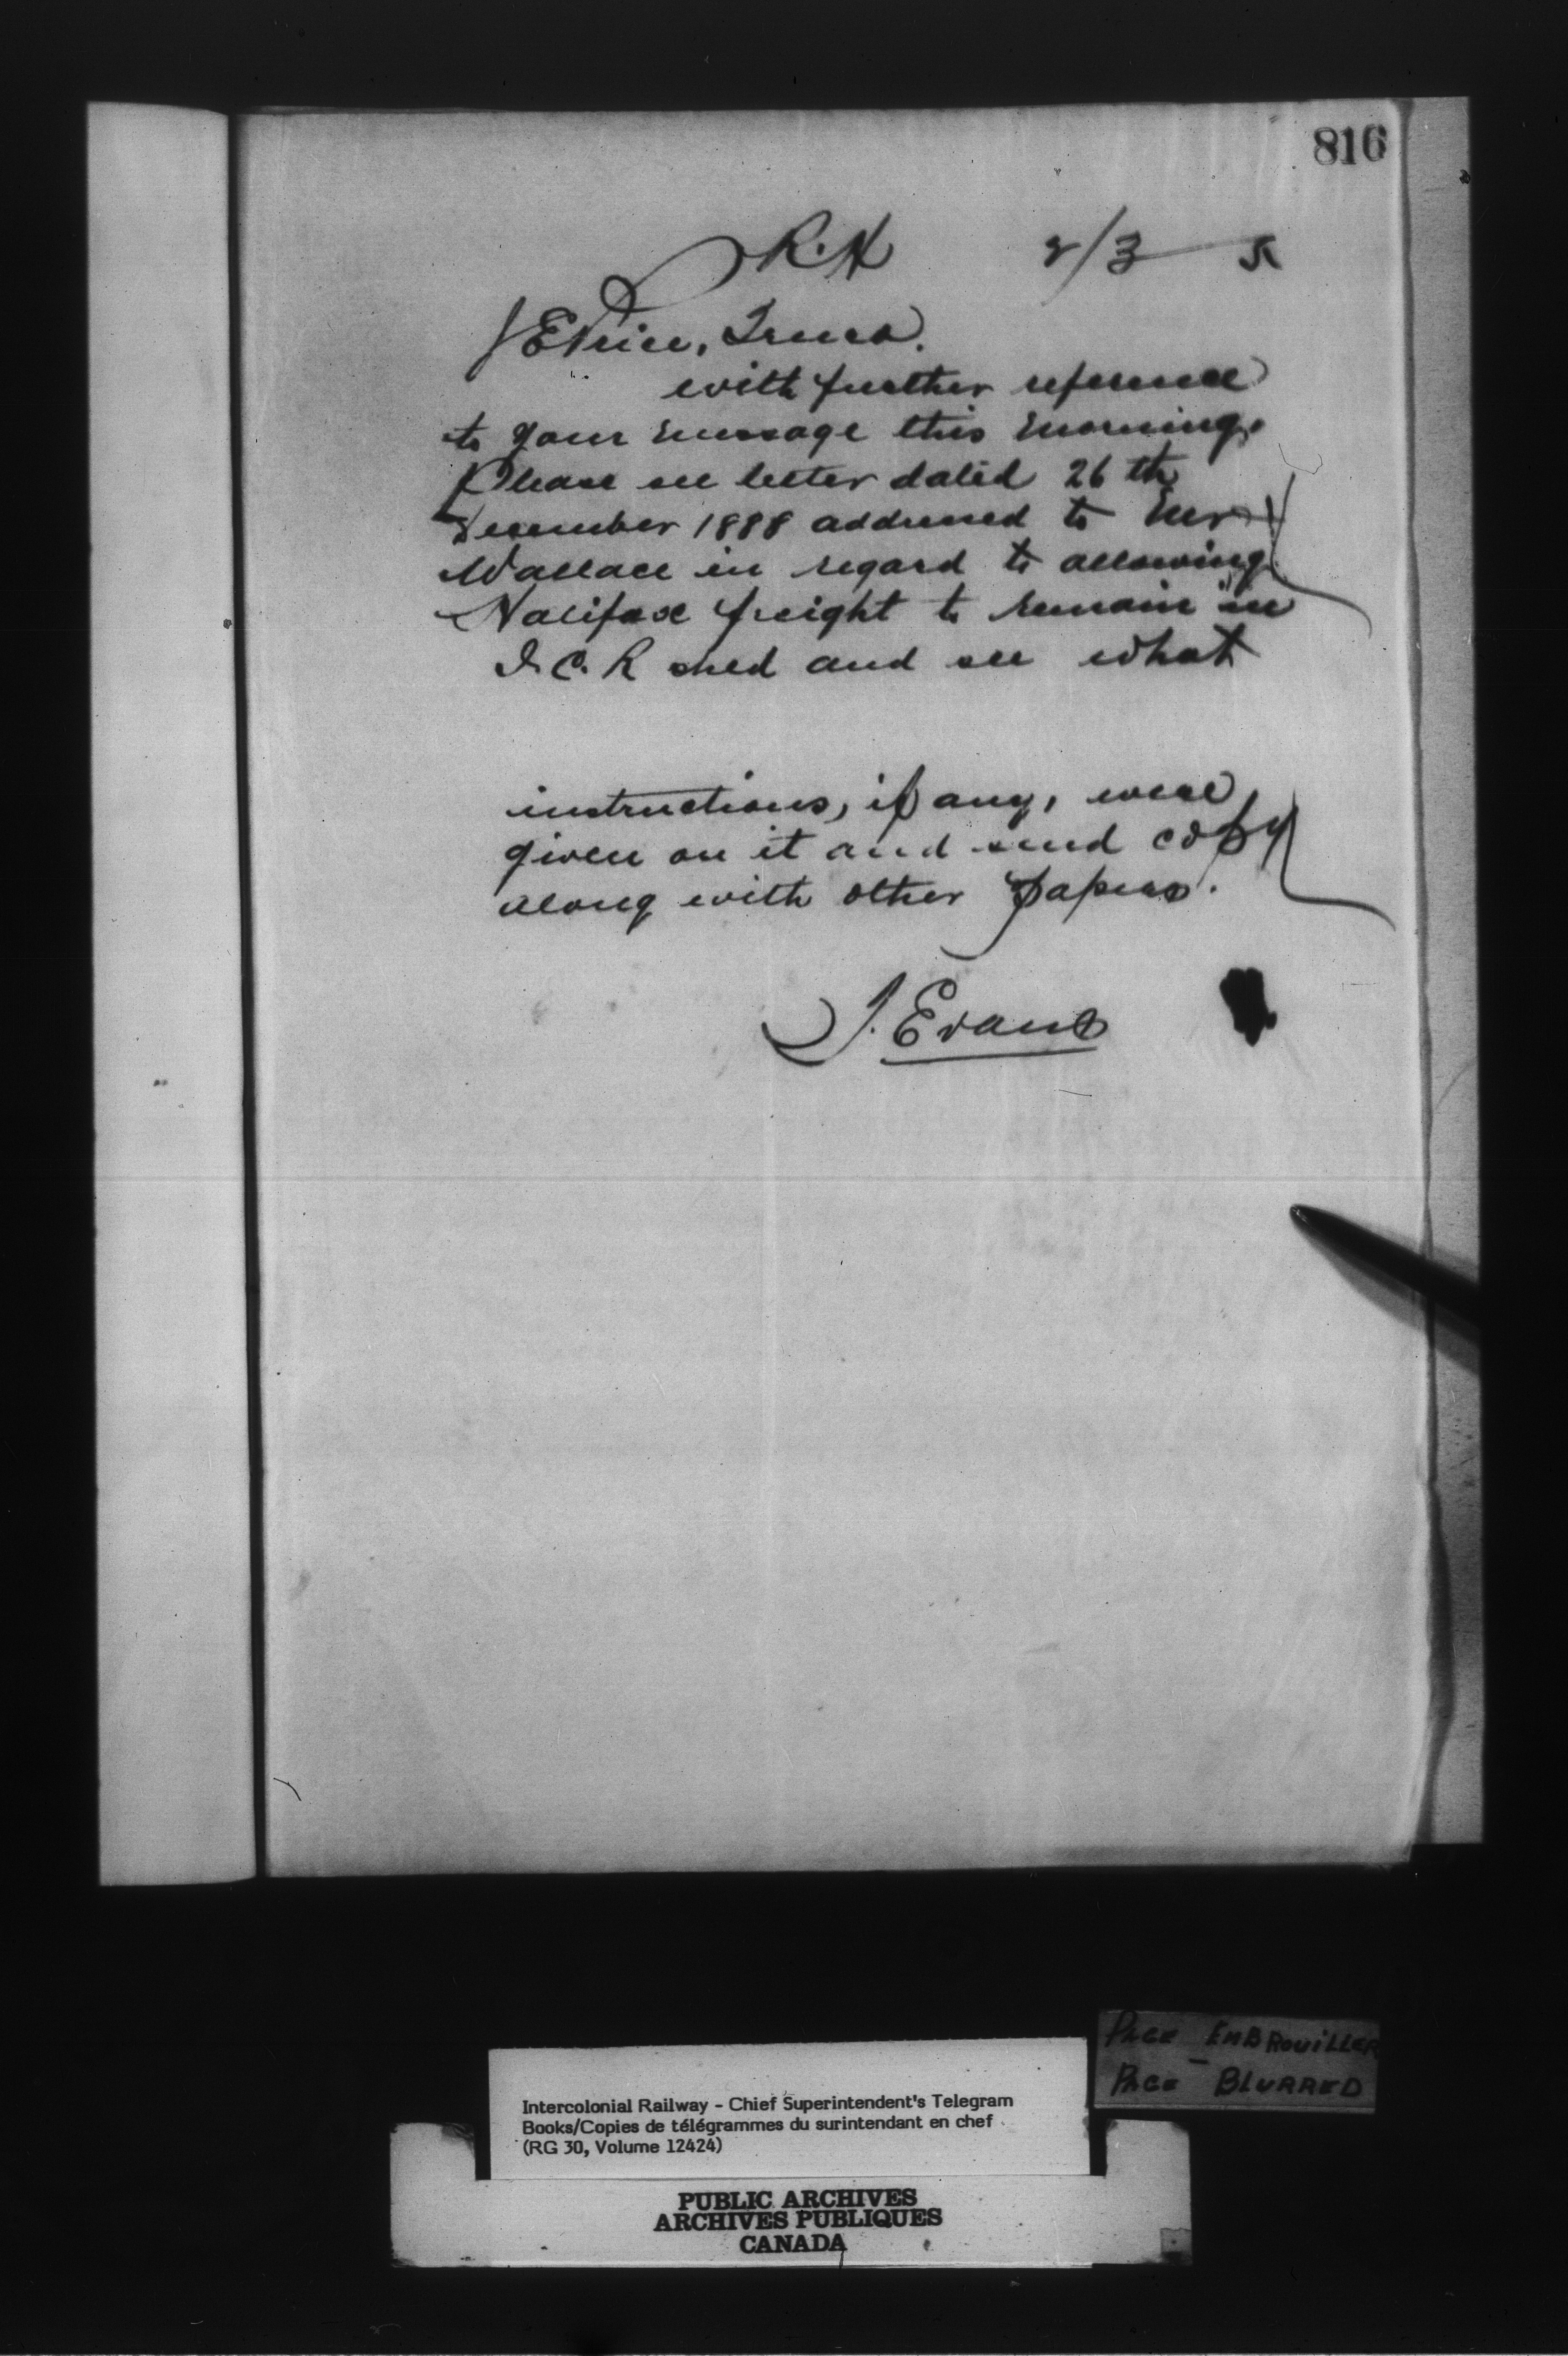 816
R.H 2/3
J E Price, Truro.
with further reference
to your message this morning.
Please see letter dated 26 th
December 1888 addressed to Mr
Wallace in regard to allowing
Halifax freight to remain in
I. C. R shed and see what
instructions, if any, were
given on it and send copy
along with other papers.
J. Evans
PAGE EMBROUILLER
PAGE - BLURRED
Intercolonial Railway - Chief Superintendent's Telegram
Books/Copies de télégrammes du surintendant en chef
(RG 30, Volume 12424)
PUBLIC ARCHIVES
ARCHIVES PUBLIQUES
CANADA